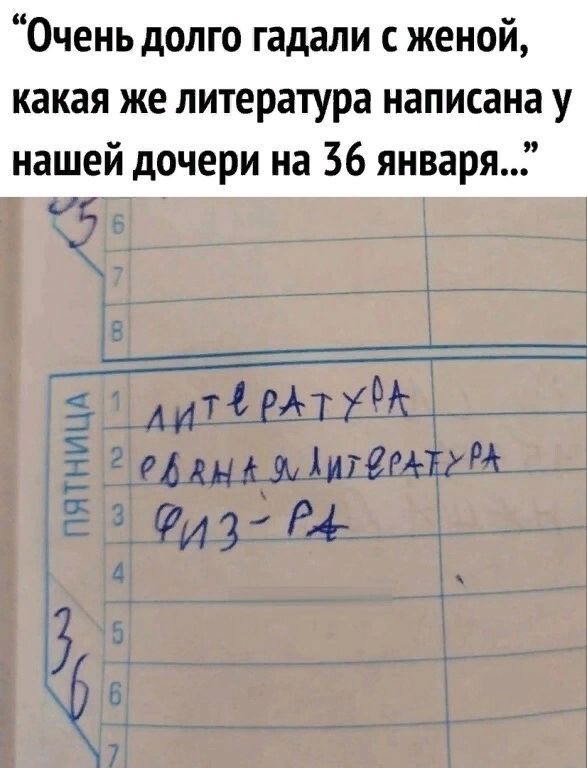 “Очень долго гадали с женой,
какая же литература написана у
нашей дочери на 36 января...”
35
6
7
8
ПЯТНИЦА
1 ЛИТЕРАТУРА
2 ЛИТЕРАТУРА
3 ФИЗ-РА
4
5
36
6
7